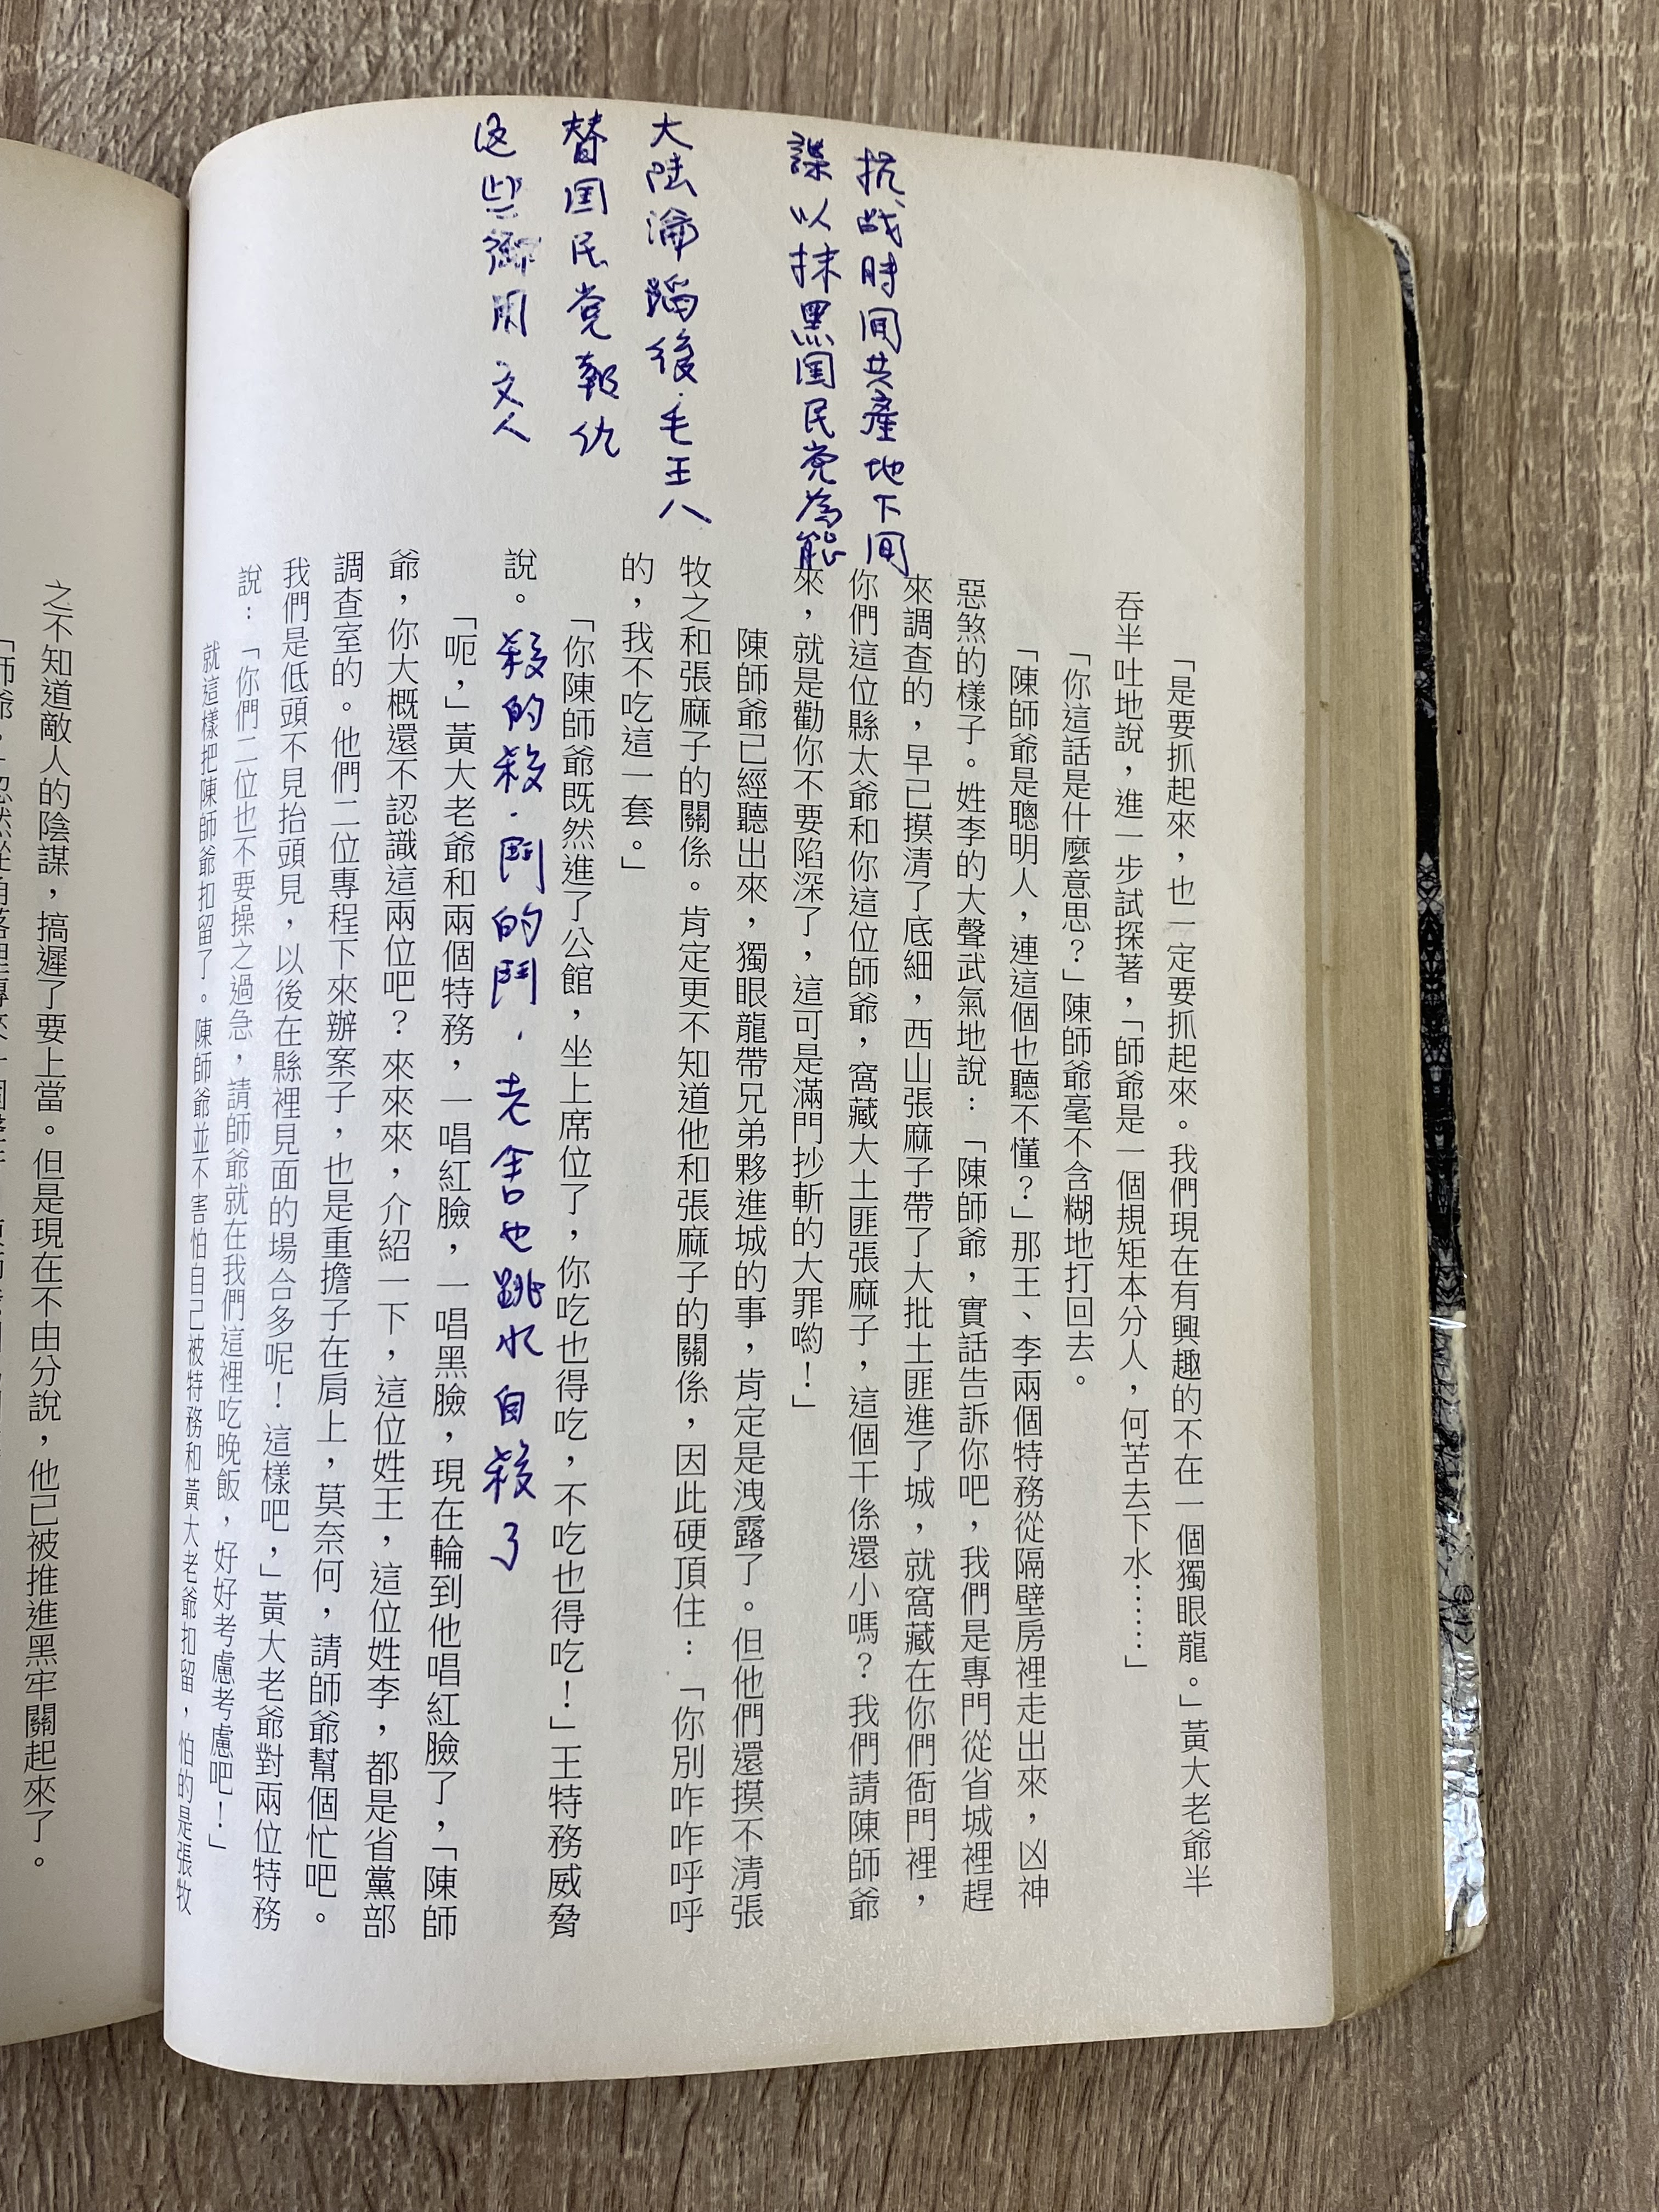 抗战時间共產地下间
諜以抹黑国民党為能
大陆淪蹈後.毛王八
替国民党報仇
这些御用文人
殺的殺.鬥的鬥.老舍也跳水自殺了
「是要抓起來，也一定要抓起來。我們現在有興趣的不在一個獨眼龍。」黃大老爺半
吞半吐地說，進一步試探著，「師爺是一個規矩本分人，何苦去下水……」
「你這話是什麼意思？」陳師爺毫不含糊地打回去。
「陳師爺是聰明人，連這個也聽不懂？」那王、李兩個特務從隔壁房裡走出來，凶神
惡煞的樣子。姓李的大聲武氣地說：「陳師爺，實話告訴你吧，我們是專門從省城裡趕
來調查的，早已摸清了底細，西山張麻子帶了大批土匪進了城，就窩藏在你們衙門裡，
你們這位縣太爺和你這位師爺，窩藏大土匪張麻子，這個干係還小嗎？我們請陳師爺
來，就是勸你不要陷深了，這可是滿門抄斬的大罪喲！」
陳師爺已經聽出來，獨眼龍帶兄弟夥進城的事，肯定是洩露了。但他們還摸不清張
牧之和張麻子的關係。肯定更不知道他和張麻子的關係，因此硬頂住：「你別咋咋呼呼
的，我不吃這一套。」
「你陳師爺既然進了公館，坐上席位了，你吃也得吃，不吃也得吃！」王特務威脅
說。
「呃，」黃大老爺和兩個特務，一唱紅臉，一唱黑臉，現在輪到他唱紅臉了，「陳師
爺，你大概還不認識這兩位吧？來來來，介紹一下，這位姓王，這位姓李，都是省黨部
調查室的。他們二位專程下來辦案子，也是重擔子在肩上，莫奈何，請師爺幫個忙吧。
我們是低頭不見抬頭見，以後在縣裡見面的場合多呢！這樣吧，」黃大老爺對兩位特務
說：「你們二位也不要操之過急，請師爺就在我們這裡吃晚飯，好好考慮考慮吧！」
就這樣把陳師爺扣留了。陳師爺並不害怕自己被特務和黃大老爺扣留，怕的是張牧
之不知道敵人的陰謀，搞遲了要上當。但是現在不由分說，他已被推進黑牢關起來了。